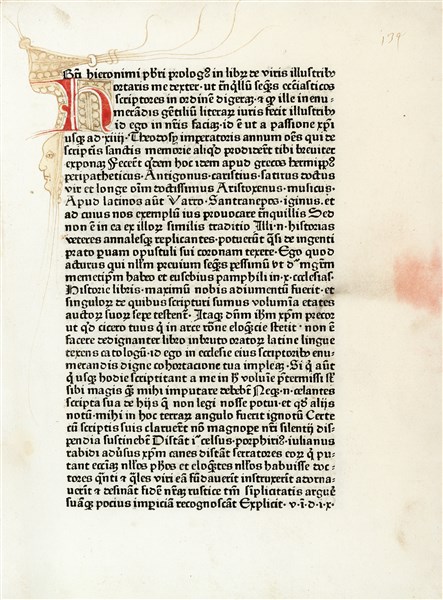 139
Btī hieronimi pbri prolog⁹ in librū de viris illustrib⁹
Hortaris me dexter· ut trāq̄llū seqn̄s ecciāsticos
scriptores in ordinē digerā· ⁊ qd ille in enu-
merādis gētiliū literar̄ iuris fecit illustrib⁹
id ego in nr̄is faciā· id ē ut a passione xp̄i
usq̄ ad ·xiiii· Theodosij imperatoris annum oēs qui de
scriptis sanctis memorie aliq̄d prodidert̄ tibi breuiter
exponā· Fecerūt q̄dem hoc idem apud grecos hermipp⁹
peripatheticus· Antigonus· caristius· satirus doctus
vir et longe oīm doctissimus Aristoxenus· musicus·
Apud latinos aūt Varro· Santranepos· iginus· et
ad cuius nos exemplū ius prouocare trānquillis Sed
non ē in ea ex illor̄ similis traditio Illi· n· historias
veteres annalesq̄ replicantes· potuerūt q̄si de ingenti
prato paruā opusculi sui coronam texere· Ego quod
acturus qui nllm̄ preuium seqn̄s pessimū vt dr̄ mgr̄m
memetip̄m habeo et eusebius pamphili in ·x· ecclesias-
Historie libris· maximū nobis adiumentū fuerit· et
singulor̄ de quibus scripturi sumus volumīa etates
auctor̄ suor̄ sepe testent̄· Itaq̄ dn̄m ihm̄ xpm̄ precor
ut qd cicero tuus q̄ in arce rōne eloq̄cie stetit· non ē
facere dedignanter libro in bruto orator̄ latine lingue
texens catologū· id ego in ecclesie eius scriptorib⁹ enu-
merandis digne cohortacione tua impleā· Si q̄ aūt
q̄ usq̄ hodie scriptitant a me in h̄ volum̄e p̄termissi sūt
sibi magis q̄ mihi imputare debebūt Neq̄· n· celantes
scripta sua de hijs q̄ non legi nosse potui· et qd alijs
notū· mihi in hoc terrar̄ angulo fuerit ignotū Certe
cū scriptis suis claruerīt nō magnopē nr̄i silentij dis-
pendia sustinebūt Discāt iḡ celsus· porphiri⁹· iulianus
rabidi aduersus xpm̄ canes discāt sectatores eor̄ q̄ pu-
tant ecciām nllos ph̄os et eloq̄tes nllos habuisse doc-
tores· q̄nti ⁊ q̄les viri eā fūdauerīt instruxerīt adorna-
uerīt ⁊ desināt fidē nr̄aꝫ rustice tm̄ sīplicitatis arguē
suāq̄ pocius imp̄iciā recognoscāt Explicit· v· i· d· i· x·